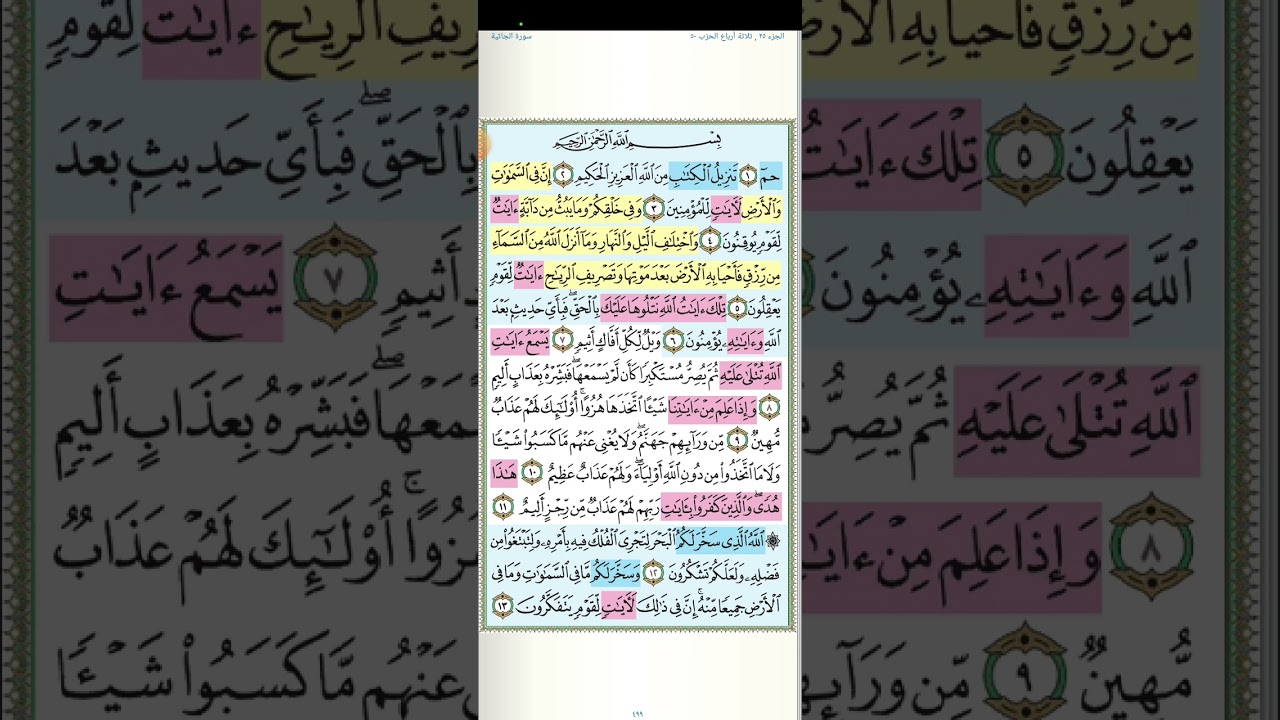 الجزء ٢٥ , ثلاثة أرباع الحزب ٥٠
سورة الجاثية
بِسْمِ ٱللَّهِ ٱلرَّحْمَٰنِ ٱلرَّحِيمِ
حمٓ ١ تَنزِيلُ ٱلْكِتَٰبِ مِنَ ٱللَّهِ ٱلْعَزِيزِ ٱلْحَكِيمِ ٢ إِنَّ فِى ٱلسَّمَٰوَٰتِ
وَٱلْأَرْضِ لَـَٔايَٰتٍ لِّلْمُؤْمِنِينَ ٣ وَفِى خَلْقِكُمْ وَمَا يَبُثُّ مِن دَآبَّةٍ ءَايَٰتٌ
لِّقَوْمٍ يُوقِنُونَ ٤ وَٱخْتِلَٰفِ ٱلَّيْلِ وَٱلنَّهَارِ وَمَآ أَنزَلَ ٱللَّهُ مِنَ ٱلسَّمَآءِ
مِن رِّزْقٍ فَأَحْيَا بِهِ ٱلْأَرْضَ بَعْدَ مَوْتِهَا وَتَصْرِيفِ ٱلرِّيَٰحِ ءَايَٰتٌ لِّقَوْمٍ
يَعْقِلُونَ ٥ تِلْكَ ءَايَٰتُ ٱللَّهِ نَتْلُوهَا عَلَيْكَ بِٱلْحَقِّ ۖ فَبِأَىِّ حَدِيثٍۭ بَعْدَ
ٱللَّهِ وَءَايَٰتِهِۦ يُؤْمِنُونَ ٦ وَيْلٌ لِّكُلِّ أَفَّاكٍ أَثِيمٍ ٧ يَسْمَعُ ءَايَٰتِ
ٱللَّهِ تُتْلَىٰ عَلَيْهِ ثُمَّ يُصِرُّ مُسْتَكْبِرًا كَأَن لَّمْ يَسْمَعْهَا ۖ فَبَشِّرْهُ بِعَذَابٍ أَلِيمٍ
٨ وَإِذَا عَلِمَ مِنْ ءَايَٰتِنَا شَيْـًٔا ٱتَّخَذَهَا هُزُوًا ۚ أُو۟لَٰٓئِكَ لَهُمْ عَذَابٌ
مُّهِينٌ ٩ مِّن وَرَآئِهِمْ جَهَنَّمُ ۖ وَلَا يُغْنِى عَنْهُم مَّا كَسَبُوا۟ شَيْـًٔا
وَلَا مَا ٱتَّخَذُوا۟ مِن دُونِ ٱللَّهِ أَوْلِيَآءَ ۖ وَلَهُمْ عَذَابٌ عَظِيمٌ ١٠ هَٰذَا
هُدًى ۖ وَٱلَّذِينَ كَفَرُوا۟ بِـَٔايَٰتِ رَبِّهِمْ لَهُمْ عَذَابٌ مِّن رِّجْزٍ أَلِيمٌ ١١
۞ ٱللَّهُ ٱلَّذِى سَخَّرَ لَكُمُ ٱلْبَحْرَ لِتَجْرِىَ ٱلْفُلْكُ فِيهِ بِأَمْرِهِۦ وَلِتَبْتَغُوا۟ مِن
فَضْلِهِۦ وَلَعَلَّكُمْ تَشْكُرُونَ ١٢ وَسَخَّرَ لَكُم مَّا فِى ٱلسَّمَٰوَٰتِ وَمَا فِى
ٱلْأَرْضِ جَمِيعًا مِّنْهُ ۚ إِنَّ فِى ذَٰلِكَ لَـَٔايَٰتٍ لِّقَوْمٍ يَتَفَكَّرُونَ ١٣
٤٩٩